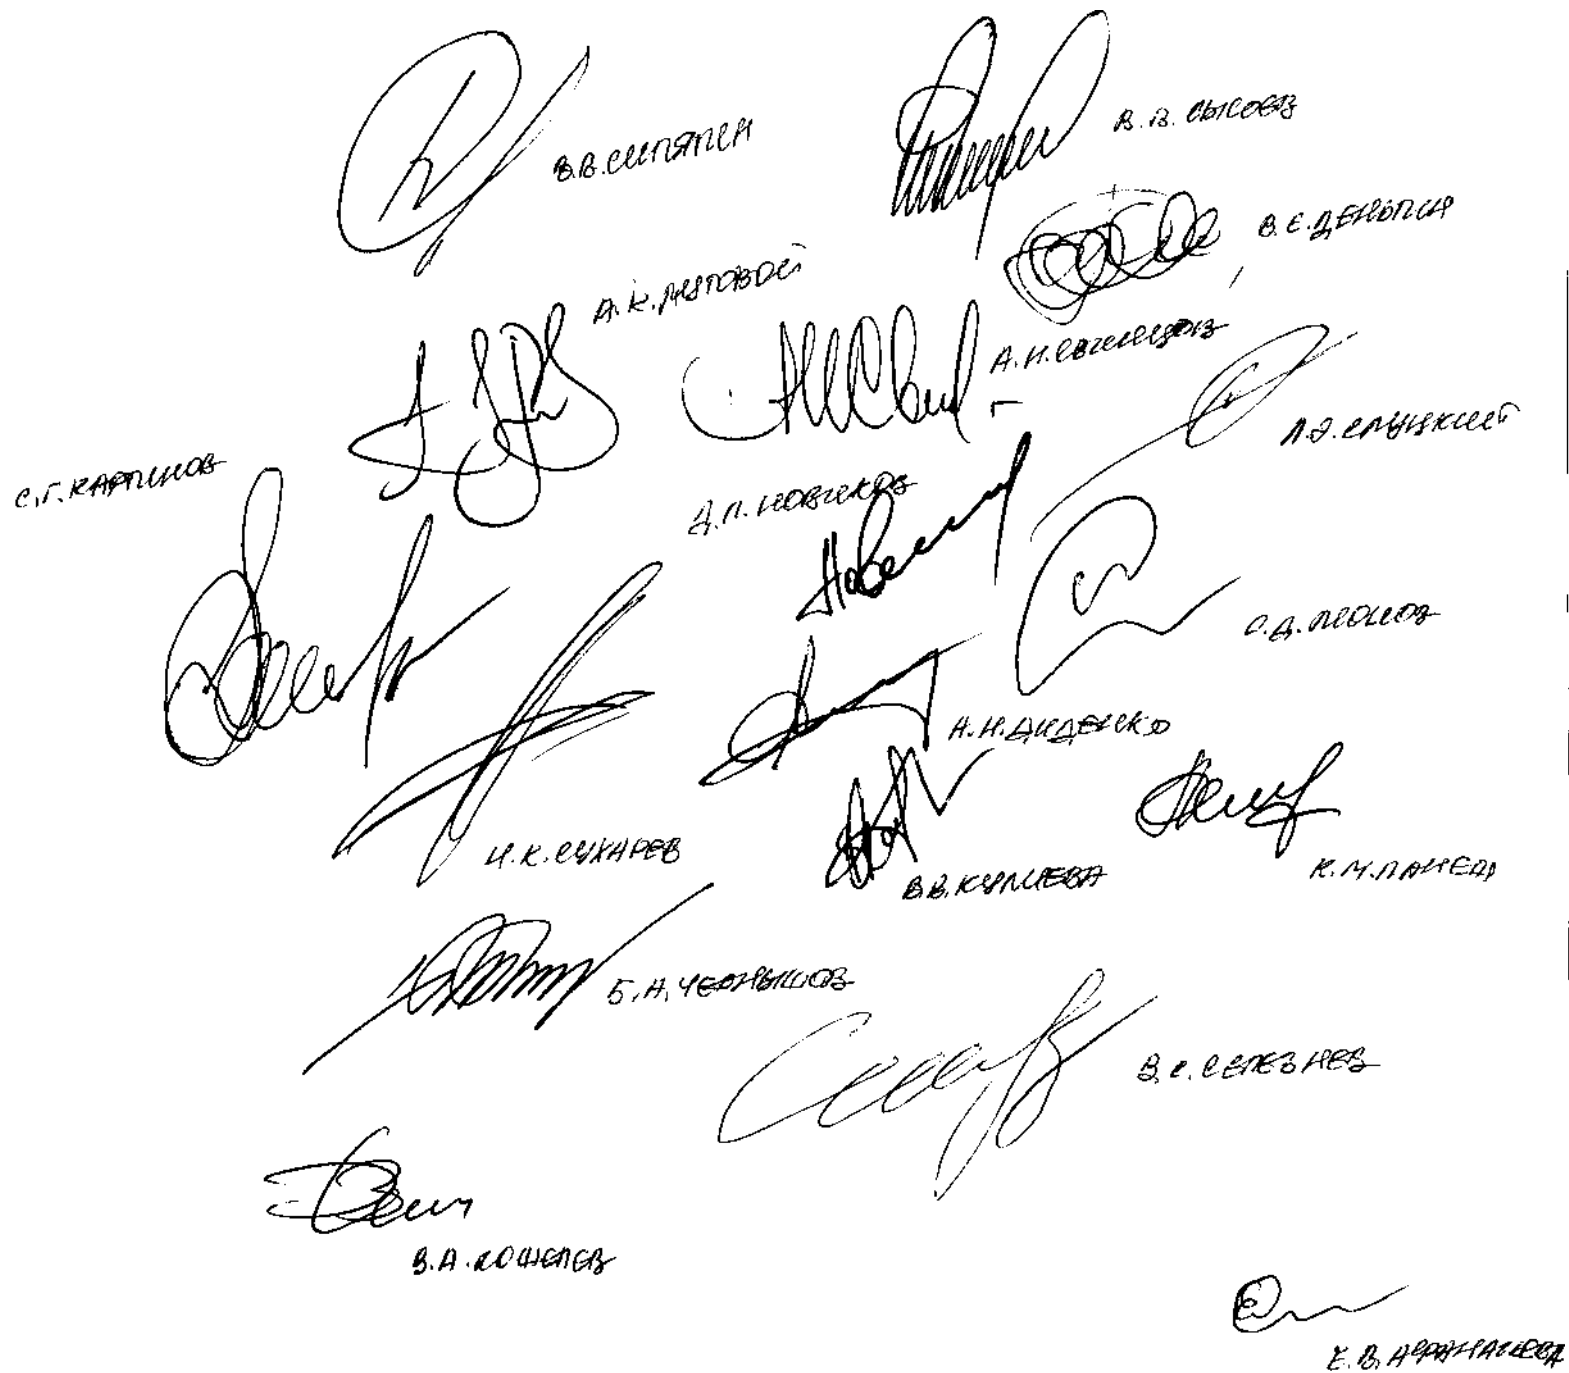 В.В. СИПЯГИН
В.В. СЫСОЕВ
В.Е. ДЕНЬГИН
А.К. ЛУГОВОЙ
А.Н. СВИНЦОВ
Л.Э. СЛУЦКИЙ
С.Г. КАРГИНОВ
Д.П. НОВИКОВ
С.Д. ЛЕОНОВ
А.Н. ДИДЕНКО
И.К. СУХАРЕВ
В.В. КУЛИЕВА
К.М. ПАНЕШ
Б.А. ЧЕРНЫШОВ
В.С. СЕЛЕЗНЕВ
В.А. КОШЕЛЕВ
Е.В. АФАНАСЬЕВА